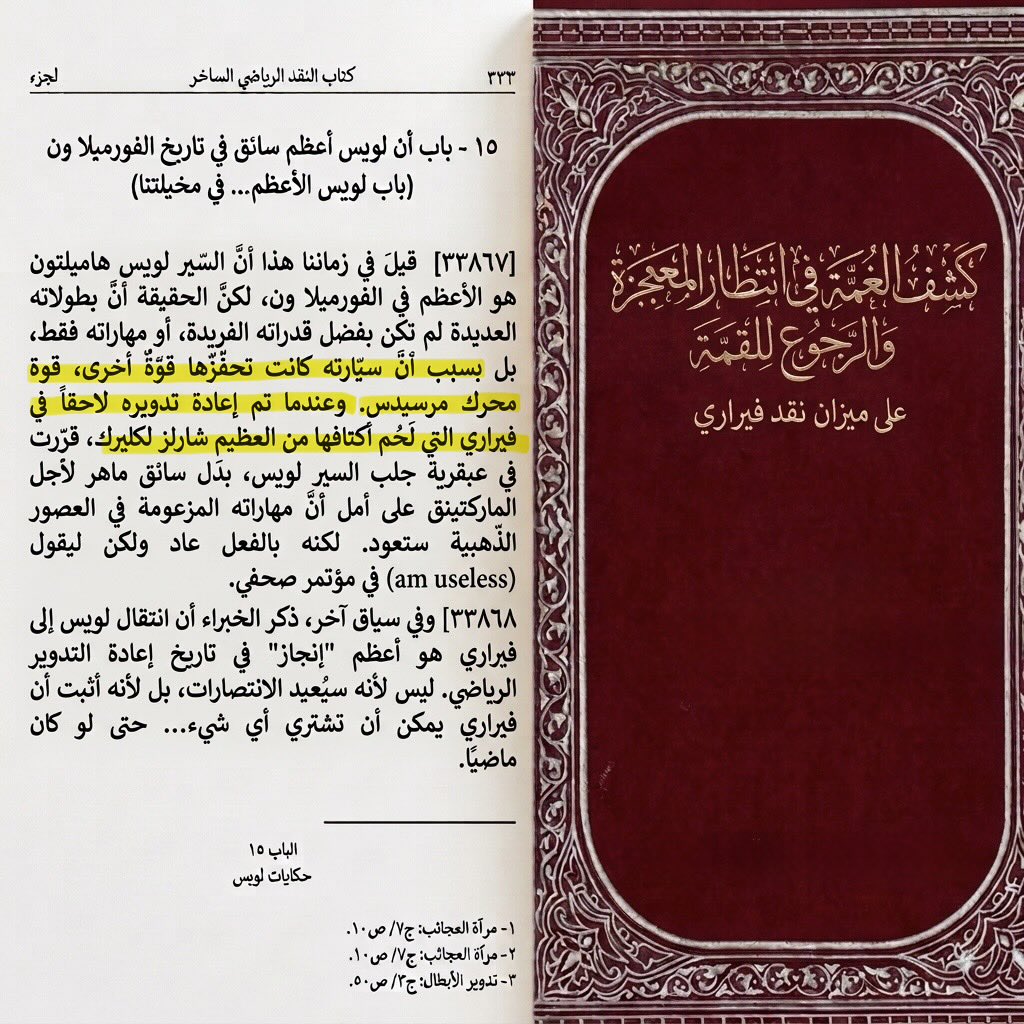 لجزء كتاب النقد الرياضي الساخر ٣٣٣
١٥ - باب أن لويس أعظم سائق في تاريخ الفورميلا ون
(باب لويس الأعظم... في مخيلتنا)
[٣٣٨٦٧] قيلَ في زماننا هذا أنَّ السّير لويس هاميلتون
هو الأعظم في الفورميلا ون، لكنَّ الحقيقة أنَّ بطولاته
العديدة لم تكن بفضل قدراته الفريدة، أو مهاراته فقط،
بل بسبب أنَّ سيّارته كانت تحفّزّها قوَّةٌ أخرى، قوة
محرك مرسيدس. وعندما تم إعادة تدويره لاحقاً في
فيراري التي لَحُم أكتافها من العظيم شارلز لكليرك، قرّرت
في عبقرية جلب السير لويس، بدَل سائق ماهر لأجل
الماركتينق على أمل أنَّ مهاراته المزعومة في العصور
الذّهبية ستعود. لكنه بالفعل عاد ولكن ليقول
(am useless) في مؤتمر صحفي.
٣٣٨٦٨] وفي سياق آخر، ذكر الخبراء أن انتقال لويس إلى
فيراري هو أعظم "إنجاز" في تاريخ إعادة التدوير
الرياضي. ليس لأنه سيُعيد الانتصارات، بل لأنه أثبت أن
فيراري يمكن أن تشتري أي شيء... حتى لو كان
ماضيًا.
الباب ١٥
حكايات لويس
١- مرآة العجائب: ج٧/ ص١٠.
٢- مرآة العجائب: ج٧/ ص١٠.
٣- تدوير الأبطال: ج٣/ ص٥٠.
كَشفُ الغُمَّة في انتظار المعجزة
وَالرَّجُوع للقمَّة
على ميزان نقد فيراري